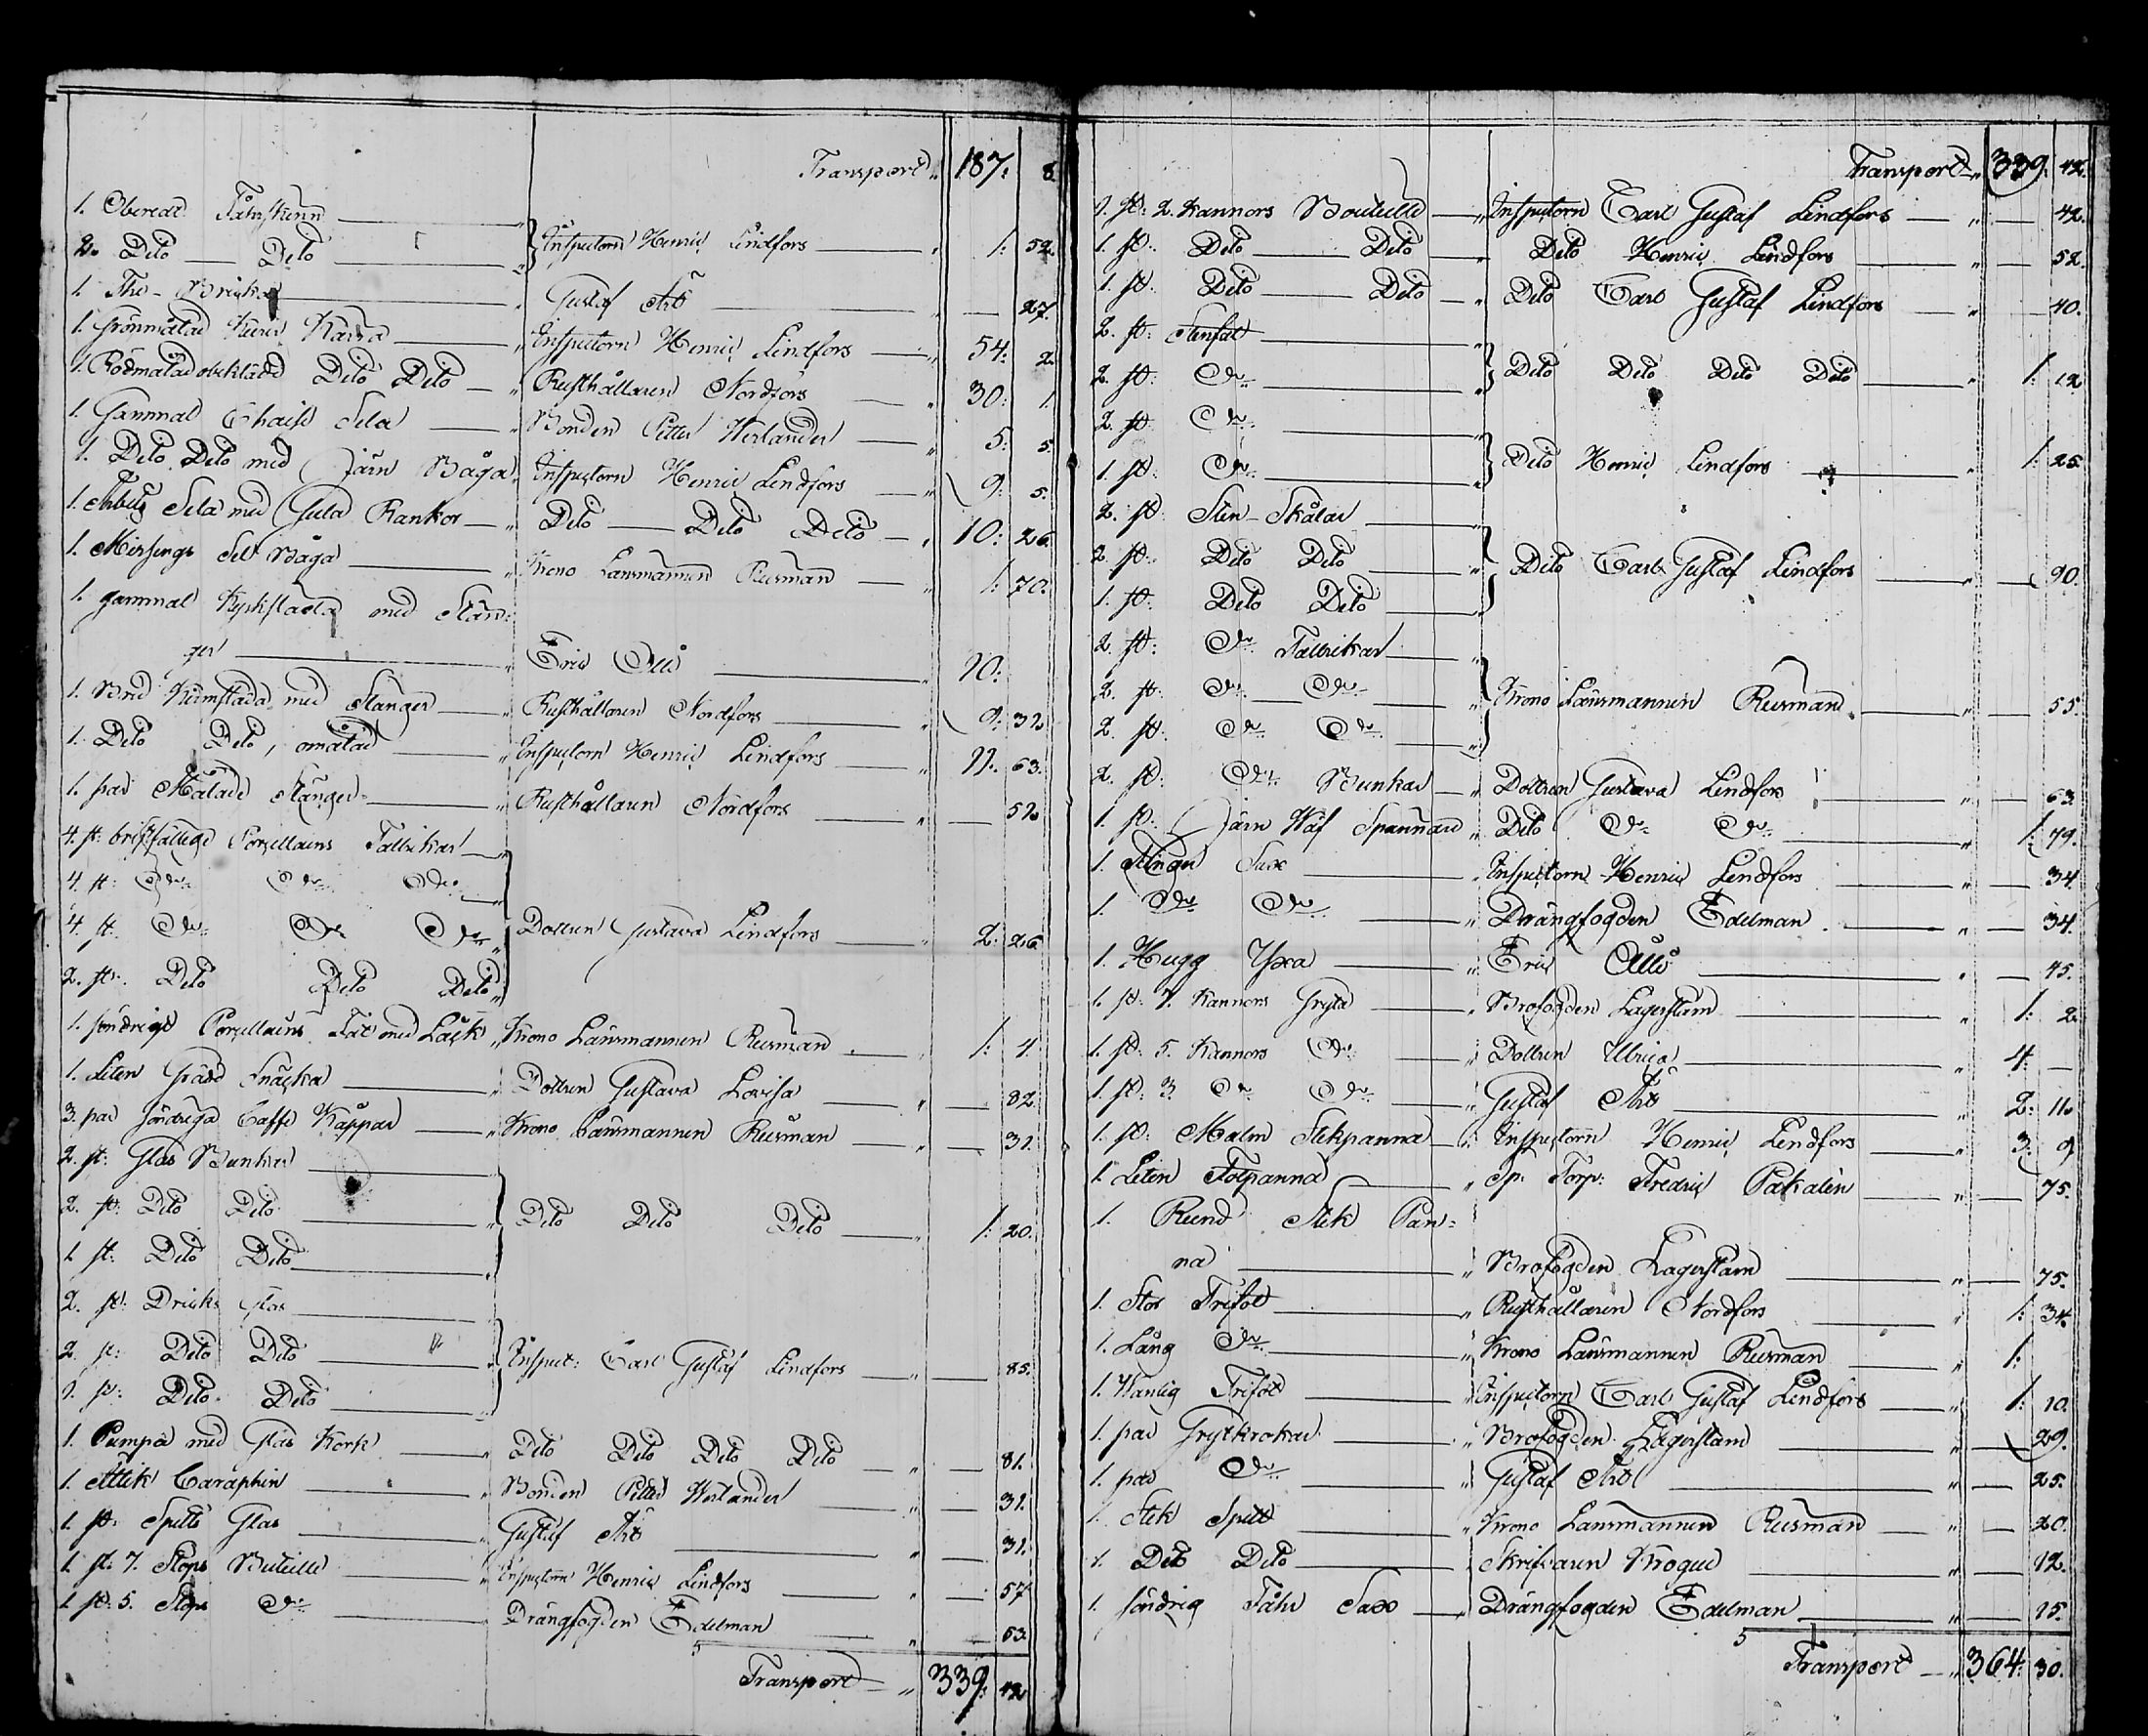 Transport „ 187: 8.
1. Oberedt Fåhrskinn
2. Dito Dito } Inspectorn Henric Lindfors „ 1: 52.
1. The-Bricka „ Gustaf „ — 27.
1. Grönmålad Kärra „ Inspectorn Henric Lindfors „ 54: 2.
1. Rödmålad obeklädd Dito Dito „ Rusthållaren Nordfors „ 30: 1.
1. Gammal Chaise Sela „ Bonden Petter Werlander „ 5: 5.
1. Dito Dito med Järn Båga „ Inspectorn Henric Lindfors „ 9: 5.
1. Arbets Sela med Gula Rankor „ Dito Dito Dito „ 10: 26.
1. Messings Sel Båga „ Krono Länsmannen Reusman „ 1: 70.
1. gammal Kyrkslada med Stän=
ger „ Eric Ollo „ 10:
1. Bred Kurmslada med Stänger „ Rusthållaren Nordfors „ 9: 32
1. Dito Dito, omålad „ Inspectorn Henric Lindfors „ 11. 63.
1. par Målade Stänger „ Rusthållaren Nordfors „ — 52
4. st: bristfällige Porcellains Talrikar „
4. st: Do Do Do „
4. st: Do Do Do „ } Dottren Gustava Lindfors „ 2: 26.
2. st: Dito Dito Dito „
1. söndrigt Porcellains Fat med Låck „ Krono Länsmannen Reusman „ 1: 4.
1. Liten Grädd Snäcka „ Dottren Gustava Lovisa „ — 82.
3. par söndriga Caffe Koppar „ Krono Länsmannen Reusman „ — 31.
2. st: Glas Bunkar
2. st: Dito Dito } Dito Dito Dito „ 1: 20.
1 st: Dito Dito
2. st: Dricks Glas
2. st: Dito Dito } Inspect: Carl Gustaf Lindfors „ — 85.
1. st: Dito Dito
1. Pumpa med Glas Kork „ Dito Dito Dito Dito „ — 81.
1. Ättik Caraphin „ Bonden Petter Werlander „ — 31.
1. st: Spetts Glas „ Gustaf „ — 31.
1. st: 7. Stops Buteille „ Inspectorn Henric Lindfors „ — 57
1 st: 5. Stops Do „ Drängfogden Edelman „ — 63.
Transport „ 339: 42
Transport „ 339: 42.
1. st: 2. Kannors Bouteille „ Inspectorn Carl Gustaf Lindfors „ — 42.
1. st: Dito Dito „ Dito Henric Lindfors „ — 52.
1. st: Dito Dito „ Dito Carl Gustaf Lindfors „ — 40.
2. st: Stenfat
2. st: Do } Dito Dito Dito Dito „ 1: 12
2. st: Do
1. st: Do } Dito Henric Lindfors „ 1: 25.
2. st: Sten-Skålar
2 st: Dito Dito } Dito Carl Gustaf Lindfors „ — 90.
1. st: Dito Dito
2. st: Do Tallrikar
2. st: Do Do } Krono Länsmannen Reusman „ — 55.
2. st: Do Do
2. st: Do Bunkar „ Dottren Gustava Lindfors „ — 63.
1. st: Järn Wäf Spannare „ Dito Do Do „ 1: 79.
1. Klingen Sax „ Inspectorn Henric Lindfors „ — 34.
1. Do Do „ Drängfogden Edelman „ — 34.
1. Hugg Yxa „ Eric Ollo „ — 45.
1. st: 7. Kannors Gryta „ Brofogden Lagerstam „ 1: 2.
1. st: 5. Kannors Do „ Dottren Ulrica „ 4: —
1. st: 3. Do Do „ Gustaf „ 2: 11.
1. st: Malm Stekpanna „ Inspectorn Henric Lindfors „ 3: 9
1. Liten Fotpanna „ Sp. Torp: Fredric Pakalén „ — 75.
1. Rund Stek Pan=
na „ Brofogden Lagerstam „ — 75.
1. Stor Trifot „ Rusthållaren Nordfors „ 1: 34.
1. Lång Do „ Krono Länsmannen Reusman „ 1:
1. Wanlig Trifot „ Inspectorn Carl Gustaf Lindfors „ 1: 10.
1. par Grytkrokar „ Brofogden Lagerstam „ — 29.
1. par Do „ Gustaf „ — 25.
1. Stek Spett „ Krono Länsmannen Reusman „ — 20.
1. Dito Dito „ Skrifvaren Krogell „ — 12.
1. söndrig Fåhr Sax „ Drängfogden Edelman „ — 15.
Transport „ 364: 30.